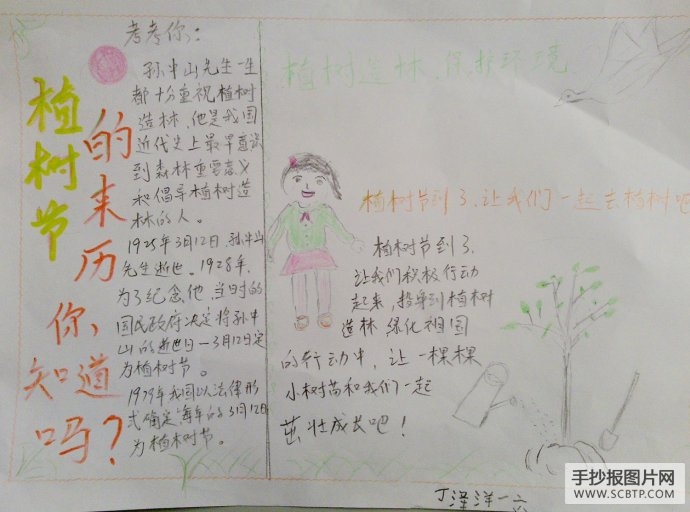 植树节
的来历
你
知道
吗?
考考你:
孙中山先生一生
都十分重视植树
造林,他是我国
近代史上最早意识
到森林重要意义
和倡导植树造
林的人。
1925年3月12日,孙中山
先生逝世。1928年,
为了纪念他,当时的
国民政府决定将孙中
山的逝世日—3月12日定
为植树节。
1979年我国以法律形
式确定每年的3月12日
为植树节。
植树造林、保护环境
植树节到了,让我们一起去植树吧
植树节到了,
让我们积极行动
起来,投身到植树
造林 绿化祖国
的行动中,让一棵棵
小树苗和我们一起
茁壮成长吧!
洋一六
手抄报图片网
WWW.SCBTP.COM